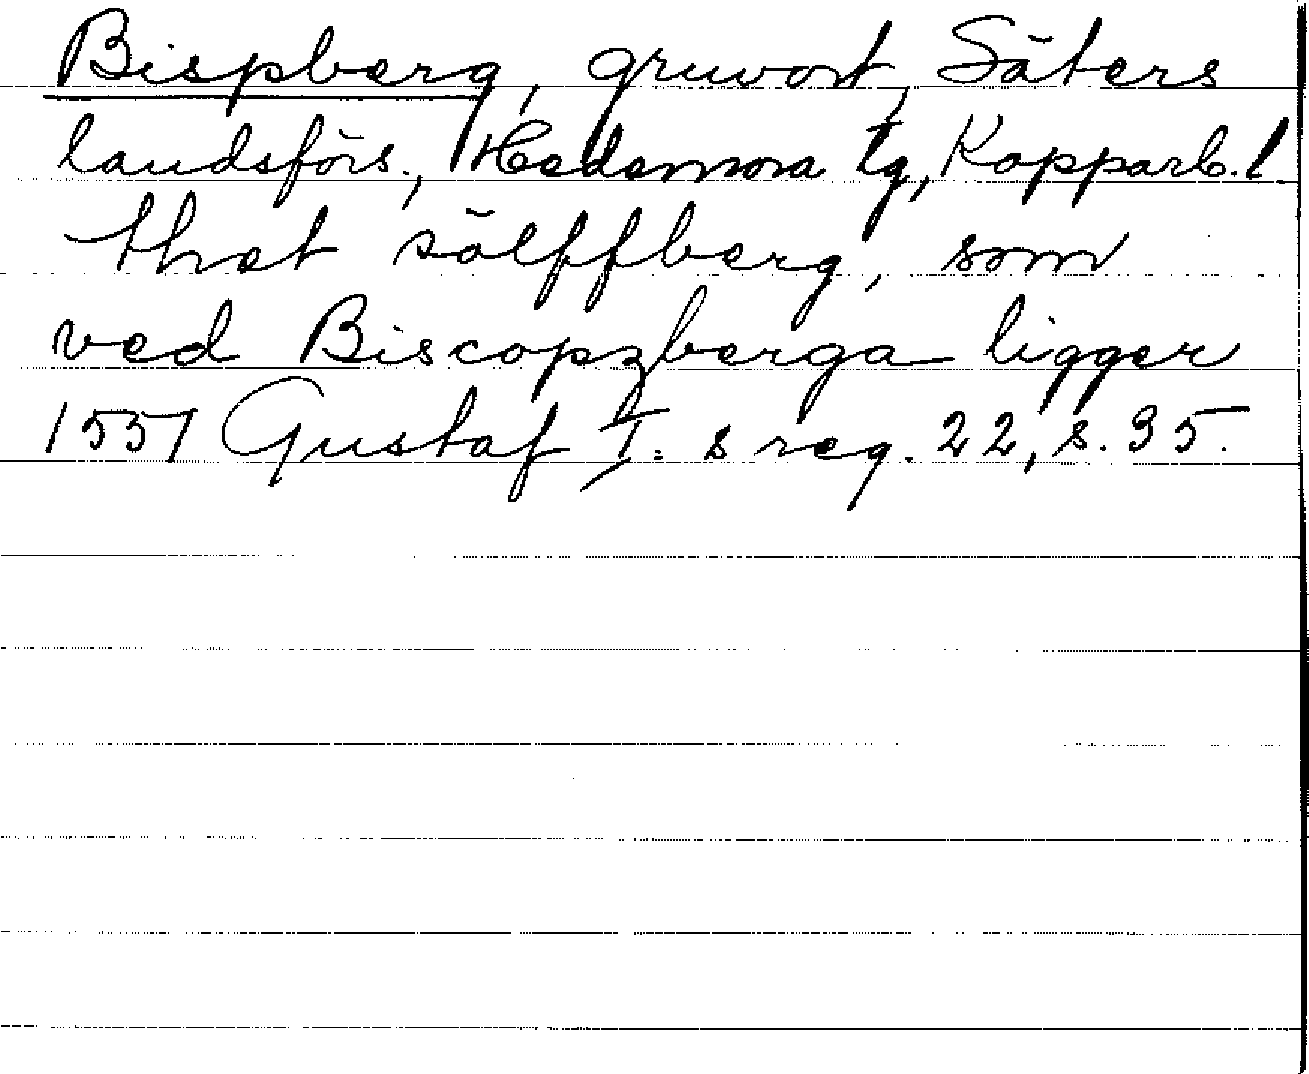 Bispberg, gruvort, Säters
landsförs., Hedemora tg, Kopparb. l
thet sölffberg, som
ved Biscopzberga ligger
1551 Gustaf I:s reg. 22, s. 35.